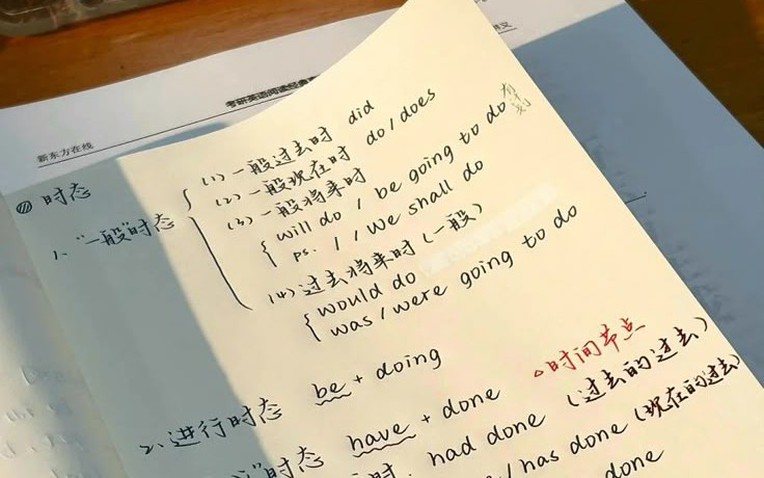 考研英语阅读经典
新东方在线
时态
1. "一般"时态
(1) 一般过去时 did
(2) 一般现在时 do/does
(3) 一般将来时
will do / be going to do
ps. I / We shall do
(4) 过去将来时(一般)
would do
was / were going to do
2. 进行时态 be + doing
"时态 have + done △时间节点
时. had done (过去的过去)
/has done (现在的过去)
done